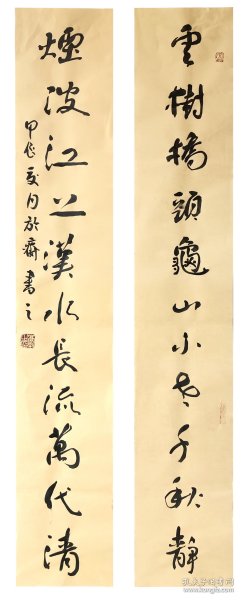 雲樹橋頭龜山不老千秋靜
煙波江上漢水長流萬代清
甲戌夏月於齋書之